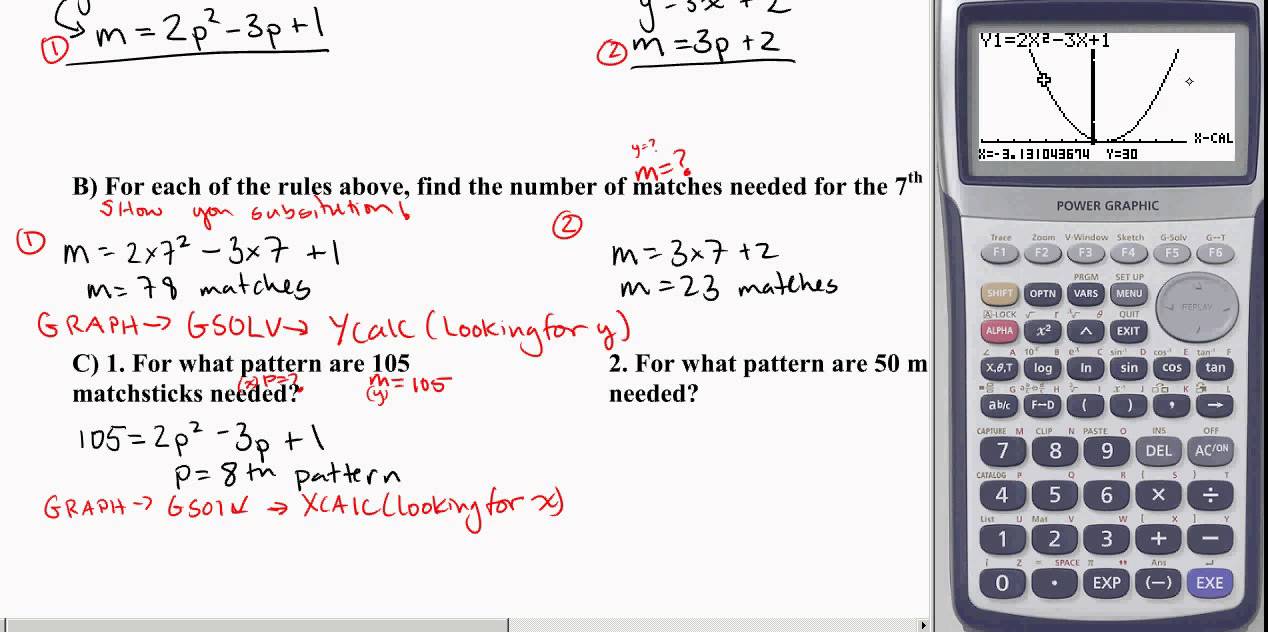 y = 3x + 2
① m = 2p² - 3p + 1
② m = 3p + 2
y=?
m=?
B) For each of the rules above, find the number of matches needed for the 7th
SHow you subsitution!
① m = 2×7² - 3×7 + 1
m = 78 matches
② m = 3×7 + 2
m = 23 matches
GRAPH → GSOLV → YCalc (Looking for y)
C) 1. For what pattern are 105
matchsticks needed?
(x) p=?
m = 105
(y)
105 = 2p² - 3p + 1
p = 8th pattern
GRAPH → GSOLV → XCALC (Looking for x)
2. For what pattern are 50 m
needed?
Y1=2X²-3X+1
X-CAL
X=-3.131043674 Y=30
POWER GRAPHIC
Trace Zoom V-Window Sketch G-Solv G↔T
F1 F2 F3 F4 F5 F6
PRGM SET UP
SHIFT OPTN VARS MENU
REPLAY
A-LOCK √ r ˣ√ θ QUIT
ALPHA x² ^ EXIT
∠ A 10ˣ B eˣ C sin⁻¹ D cos⁻¹ E tan⁻¹ F
X,θ,T log ln sin cos tan
G H I J K L
ab/c F↔D ( ) , →
CAPTURE M CLIP N PASTE O INS OFF
7 8 9 DEL AC/ON
CATALOG P Q R { S } T
4 5 6 × ÷
List U Mat V W [ X ] Y
1 2 3 + −
i Z = SPACE π " Ans ↵
0 . EXP (−) EXE